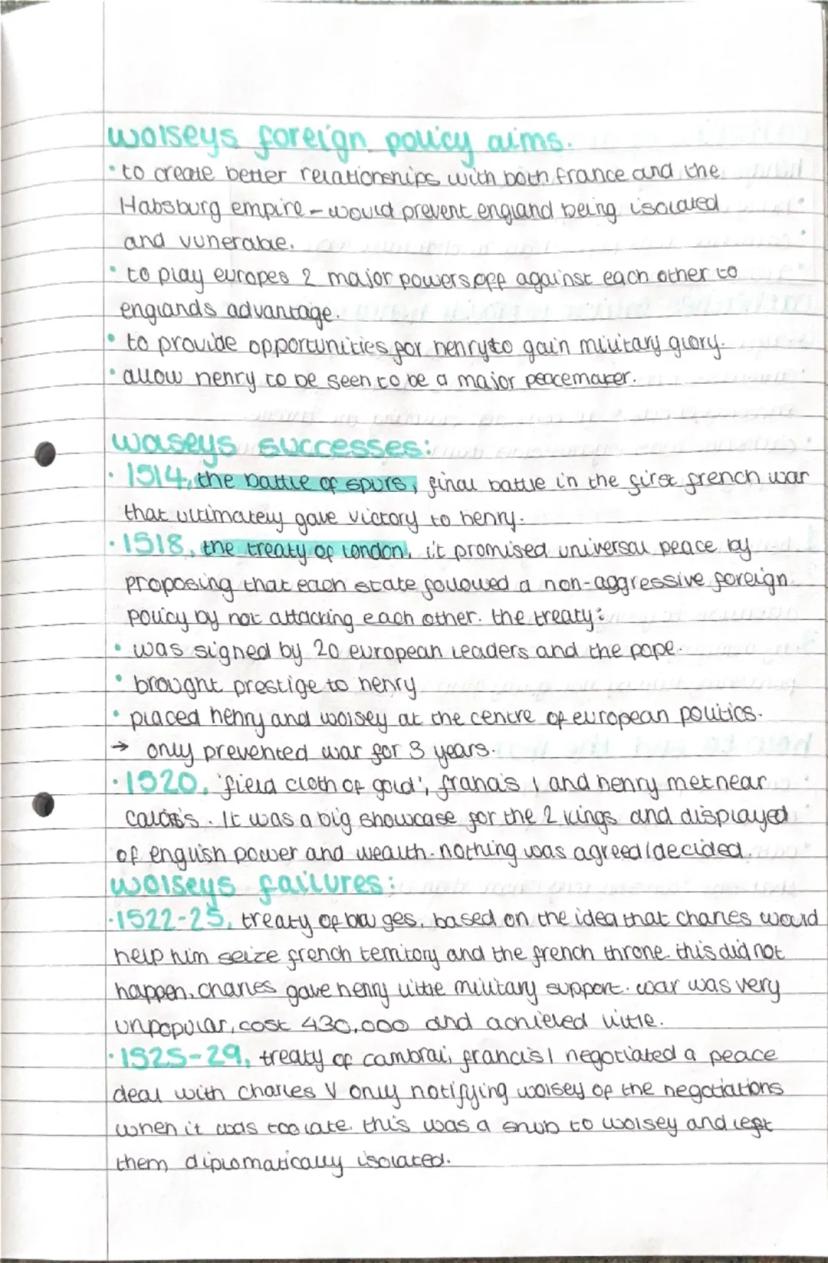 wolseys foreign policy aims.
• to create better relationships with both france and the
Habsburg empire - would prevent england being isolated
and vunerable.
• to play europes 2 major powers off against each other to
englands advantage.
• to provide opportunities for henry to gain military glory.
• allow henry to be seen to be a major peacemaker.
wolseys successes:
• 1514, the battle of spurs, final battle in the first french war
that ultimately gave victory to henry.
• 1518, the treaty of london, it promised universal peace by
proposing that each state followed a non-aggressive foreign
policy by not attacking each other. the treaty:
• was signed by 20 european leaders and the pope.
• brought prestige to henry
• placed henry and wolsey at the centre of european politics.
→ only prevented war for 3 years.
• 1520, 'field cloth of gold', francis 1 and henry met near
calais. It was a big showcase for the 2 kings and displayed
of english power and wealth. nothing was agreed/decided.
wolseys failures:
• 1522-25, treaty of bruges, based on the idea that charles would
help him seize french territory and the french throne. this did not
happen. charles gave henry little military support. war was very
unpopular, cost 430,000 and achieved little.
• 1525-29, treaty of cambrai, francis 1 negotiated a peace
deal with charles V only notifying wolsey of the negotiations
when it was too late. this was a snub to wolsey and left
them diplomatically isolated.